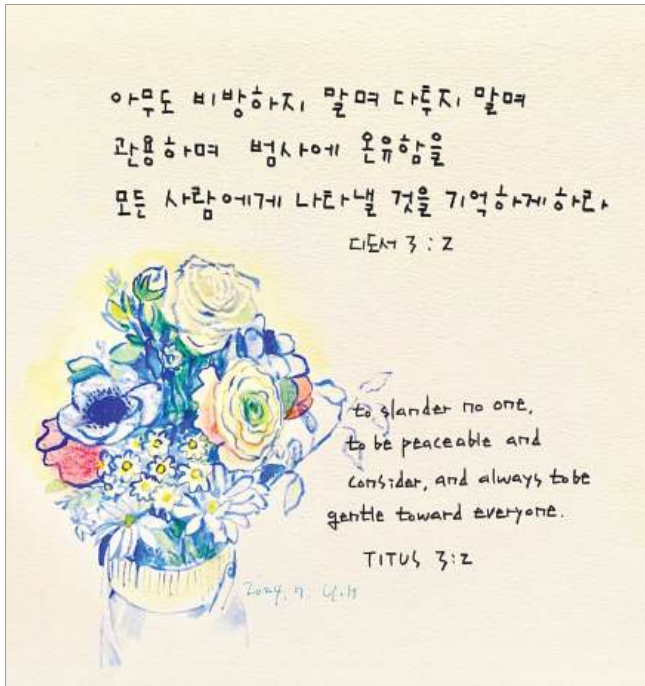 아무도 비방하지 말며 다투지 말며
관용하며 범사에 온유함을
모든 사람에게 나타낼 것을 기억하게하라
디도서 3:2
to slander no one,
to be peaceable and
consider, and always to be
gentle toward everyone.
TITUS 3:2
2024. 7.